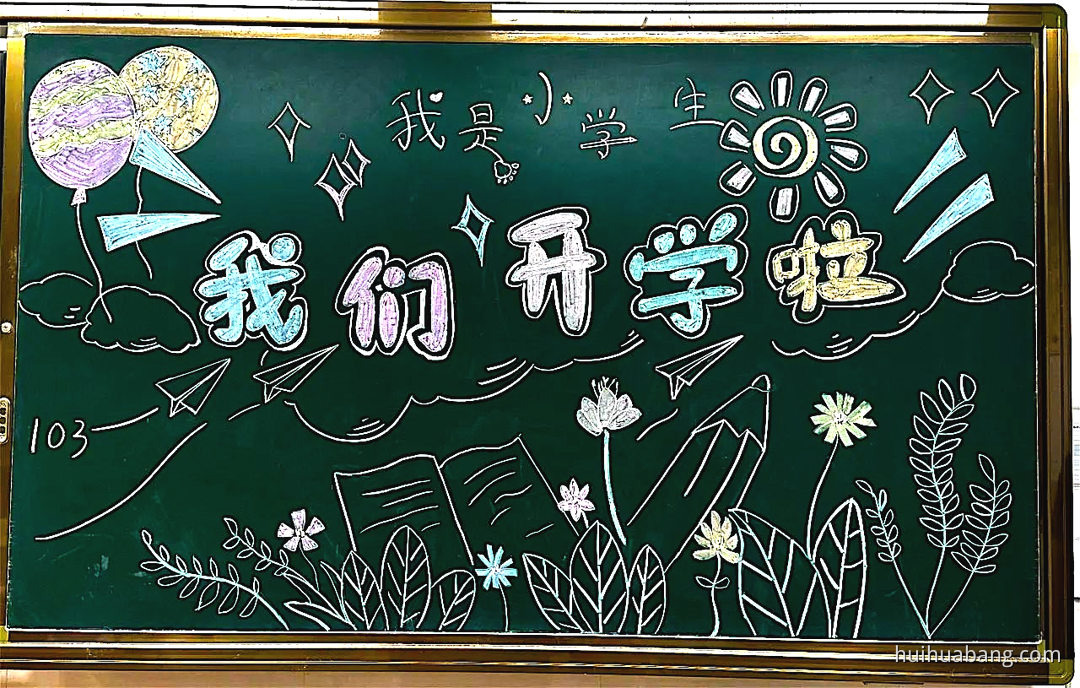 我是小学生
我们开学啦
103
huihuabang.com